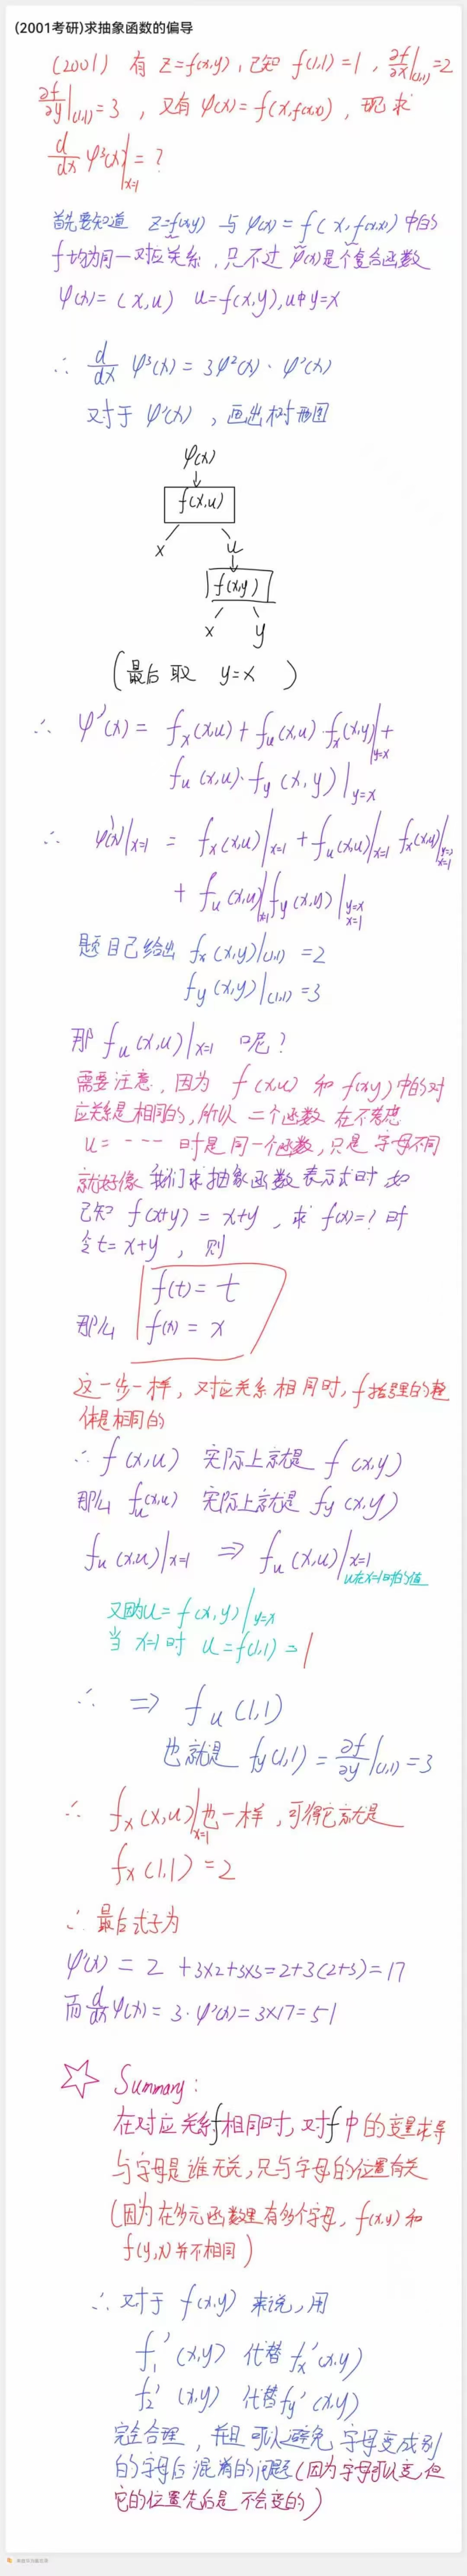 (2001考研)求抽象函数的偏导
(2001) 有 z=f(x,y), 已知 f(1,1)=1, ∂f/∂x|(1,1)=2
∂f/∂y|(1,1)=3, 又有 φ(x)=f(x,f(x,x)), 现求
d/dx φ³(x)|x=1 = ?
首先要知道 z=f(x,y) 与 φ(x)=f(x,f(x,x))中的
f均为同一对应关系, 只不过 φ(x)是个复合函数
φ(x)=(x,u) u=f(x,y),u中y=x
∴ d/dx φ³(x)=3φ²(x)·φ'(x)
对于 φ'(x), 画出树形图
φ(x)
f(x,u)
x u
f(x,y)
x y
(最后取 y=x)
∴ φ'(x)= fx(x,u)+fu(x,u)·fx(x,y)|y=x+
fu(x,u)·fy(x,y)|y=x
∴ φ'(x)|x=1 = fx(x,u)|x=1 + fu(x,u)|x=1 fx(x,y)|y=x x=1
+ fu(x,u)|x=1 fy(x,y)|y=x x=1
题目已给出 fx(x,y)|(1,1) =2
fy(x,y)|(1,1)=3
那 fu(x,u)|x=1 呢?
需要注意, 因为 f(x,u) 和 f(x,y)中的对
应关系是相同的, 所以 二个函数 在不考虑
u= ---- 时是同一个函数, 只是 字母不同
就好像 我们求抽象函数表示式时 如
已知 f(x+y)=x+y, 求 f(x)=? 时
令t=x+y, 则
f(t)=t
那么 f(x)=x
这一步一样, 对应关系相同时, f括号里的整
体是相同的
∴ f(x,u) 实际上就是 f(x,y)
那么 fu(x,u) 实际上就是 fy(x,y)
fu(x,u)|x=1 ⇒ fu(x,u)|x=1
u在x=1时的值
又因为u=f(x,y)|y=x
当 x=1时 u=f(1,1)=1
∴ ⇒ fu(1,1)
也就是 fy(1,1)=∂f/∂y|(1,1)=3
∴ fx(x,u)|x=1也一样, 可得它就是
fx(1,1)=2
∴ 最后式子为
φ'(x)= 2 +3×2+3×3=2+3(2+3)=17
而 d/dx φ(x)= 3·φ'(x)=3×17=51
☆ Summary:
在对应关系f相同时, 对f中的变量求导
与字母是谁无关, 只与字母的位置有关
(因为在多元函数里有多个字母, f(x,y)和
f(y,x)并不相同)
∴ 对于 f(x,y) 来说, 用
f₁'(x,y) 代替 fx'(x,y)
f₂'(x,y) 代替 fy'(x,y)
完全合理, 并且可以避免 字母变成别
的字母后混淆的问题(因为字母可以变,但
它的位置先后是 不会变的)